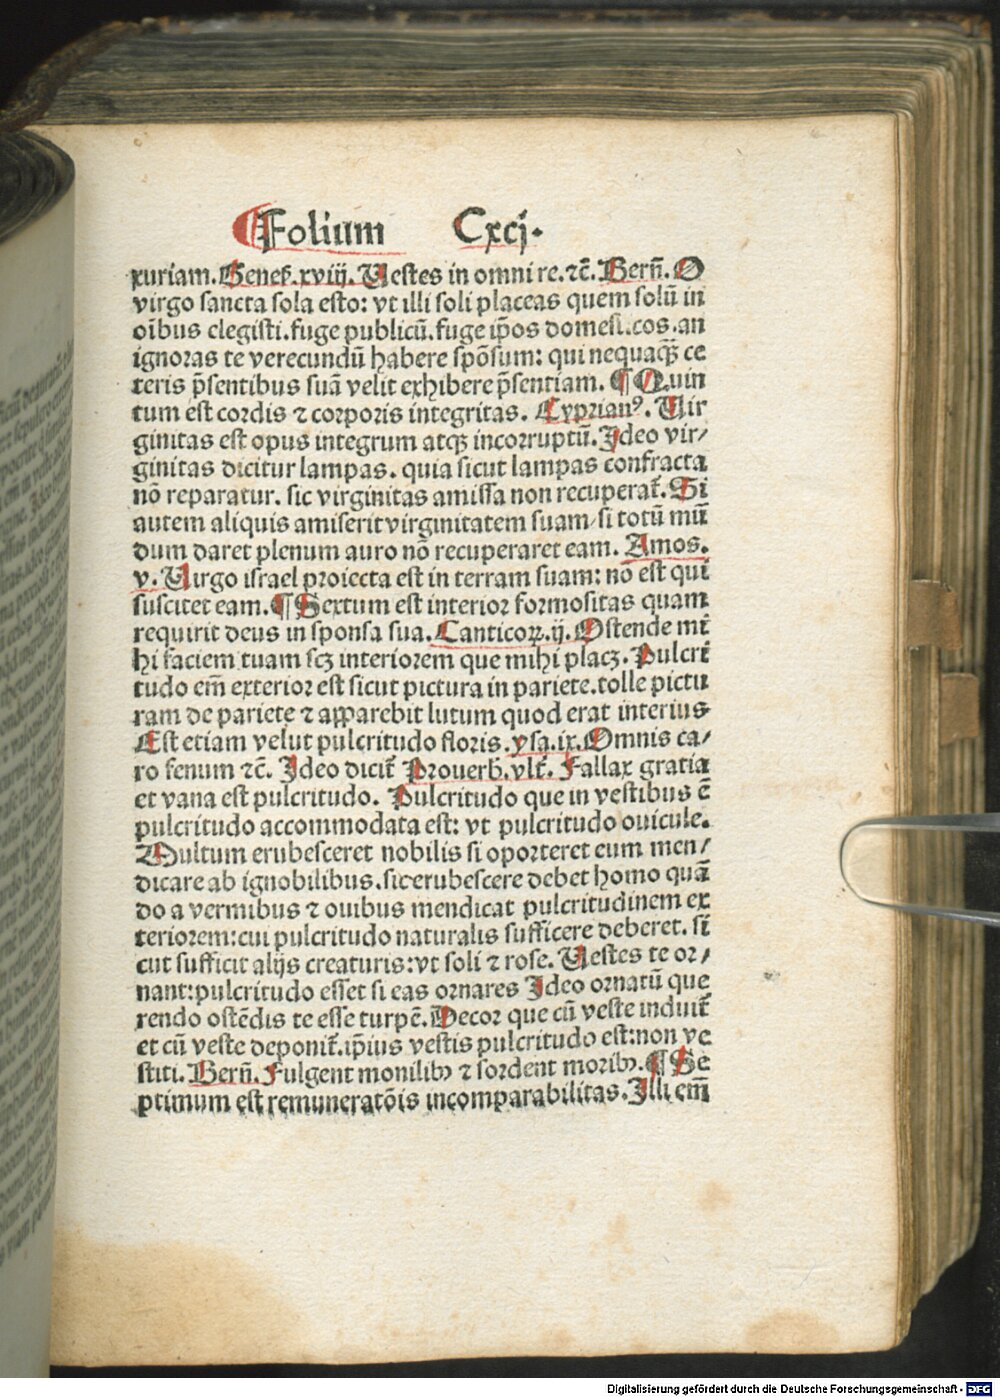 Folium Cxcj.
xuriam. Genes̄. xviij. Uestes in omni re. ⁊c̄. Bern̄. O
virgo sancta sola esto: vt illi soli placeas quem solū in
oībus elegisti. fuge publicū. fuge ip̄os domesi. cos. an
ignoras te verecundū habere spōsum: qui nequaq̄ꝫ ce
teris p̄sentibus suā velit exhibere p̄sentiam. ¶ Quin
tum est cordis ⁊ corporis integritas. Cyprianꝰ. Uir
ginitas est opus integrum atqꝫ incorruptū. Ideo vir⸗
ginitas dicitur lampas. quia sicut lampas confracta
nō reparatur. sic virginitas amissa non recuperat̄. Si
autem aliquis amiserit virginitatem suam / si totū mū
dum daret plenum auro nō recuperaret eam. Amos.
v. Uirgo israel proiecta est in terram suam: nō est qui
suscitet eam. ¶ Sextum est interior formositas quam
requirit deus in sponsa sua. Canticoꝝ. ij. Ostende mi
hi faciem tuam scꝫ interiorem que mihi placꝫ. Pulcri
tudo em̄ exterior est sicut pictura in pariete. tolle pictu
ram de pariete ⁊ apparebit lutum quod erat interius
Est etiam velut pulcritudo floris. ysa. ix. Omnis ca⸗
ro fenum ⁊c̄. Ideo dicit̄ Prouerb̄. vlt̄. Fallax gratia
et vana est pulcritudo. Pulcritudo que in vestibus ē
pulcritudo accommodata est: vt pulcritudo ouicule.
Multum erubesceret nobilis si oporteret eum men⸗
dicare ab ignobilibus. sic erubescere debet homo quā
do a vermibus ⁊ ouibus mendicat pulcritudinem ex
teriorem: cui pulcritudo naturalis sufficere deberet. si
cut sufficit alijs creaturis: vt soli ⁊ rose. Uestes te or⸗
nant: pulcritudo esset si eas ornares Ideo ornatū que
rendo ostēdis te esse turpē. Decor que cū veste induit̄
et cū veste deponit̄. ip̄ius vestis pulcritudo est: non ve
stiti. Bern̄. Fulgent monilibꝫ ⁊ sordent moribꝫ. ¶ Se
ptimum est remuneratōis incomparabilitas. Illi em̄
Digitalisierung gefördert durch die Deutsche Forschungsgemeinschaft - DFG